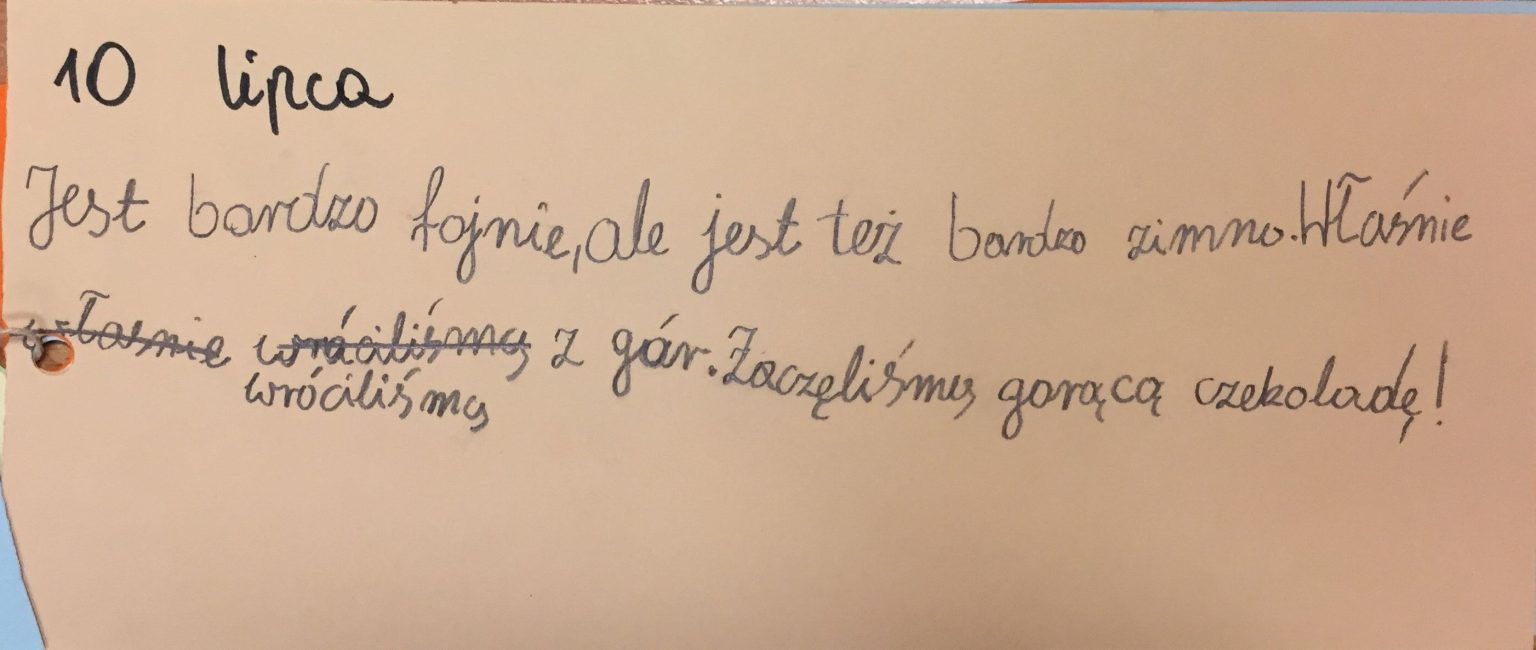 10 lipca
Jest bardzo fajnie, ale jest też bardzo zimno. Właśnie
własnie wráciliśmy z gór. Zaczęliśmy gorącą czekoladę!
wróciliśmy